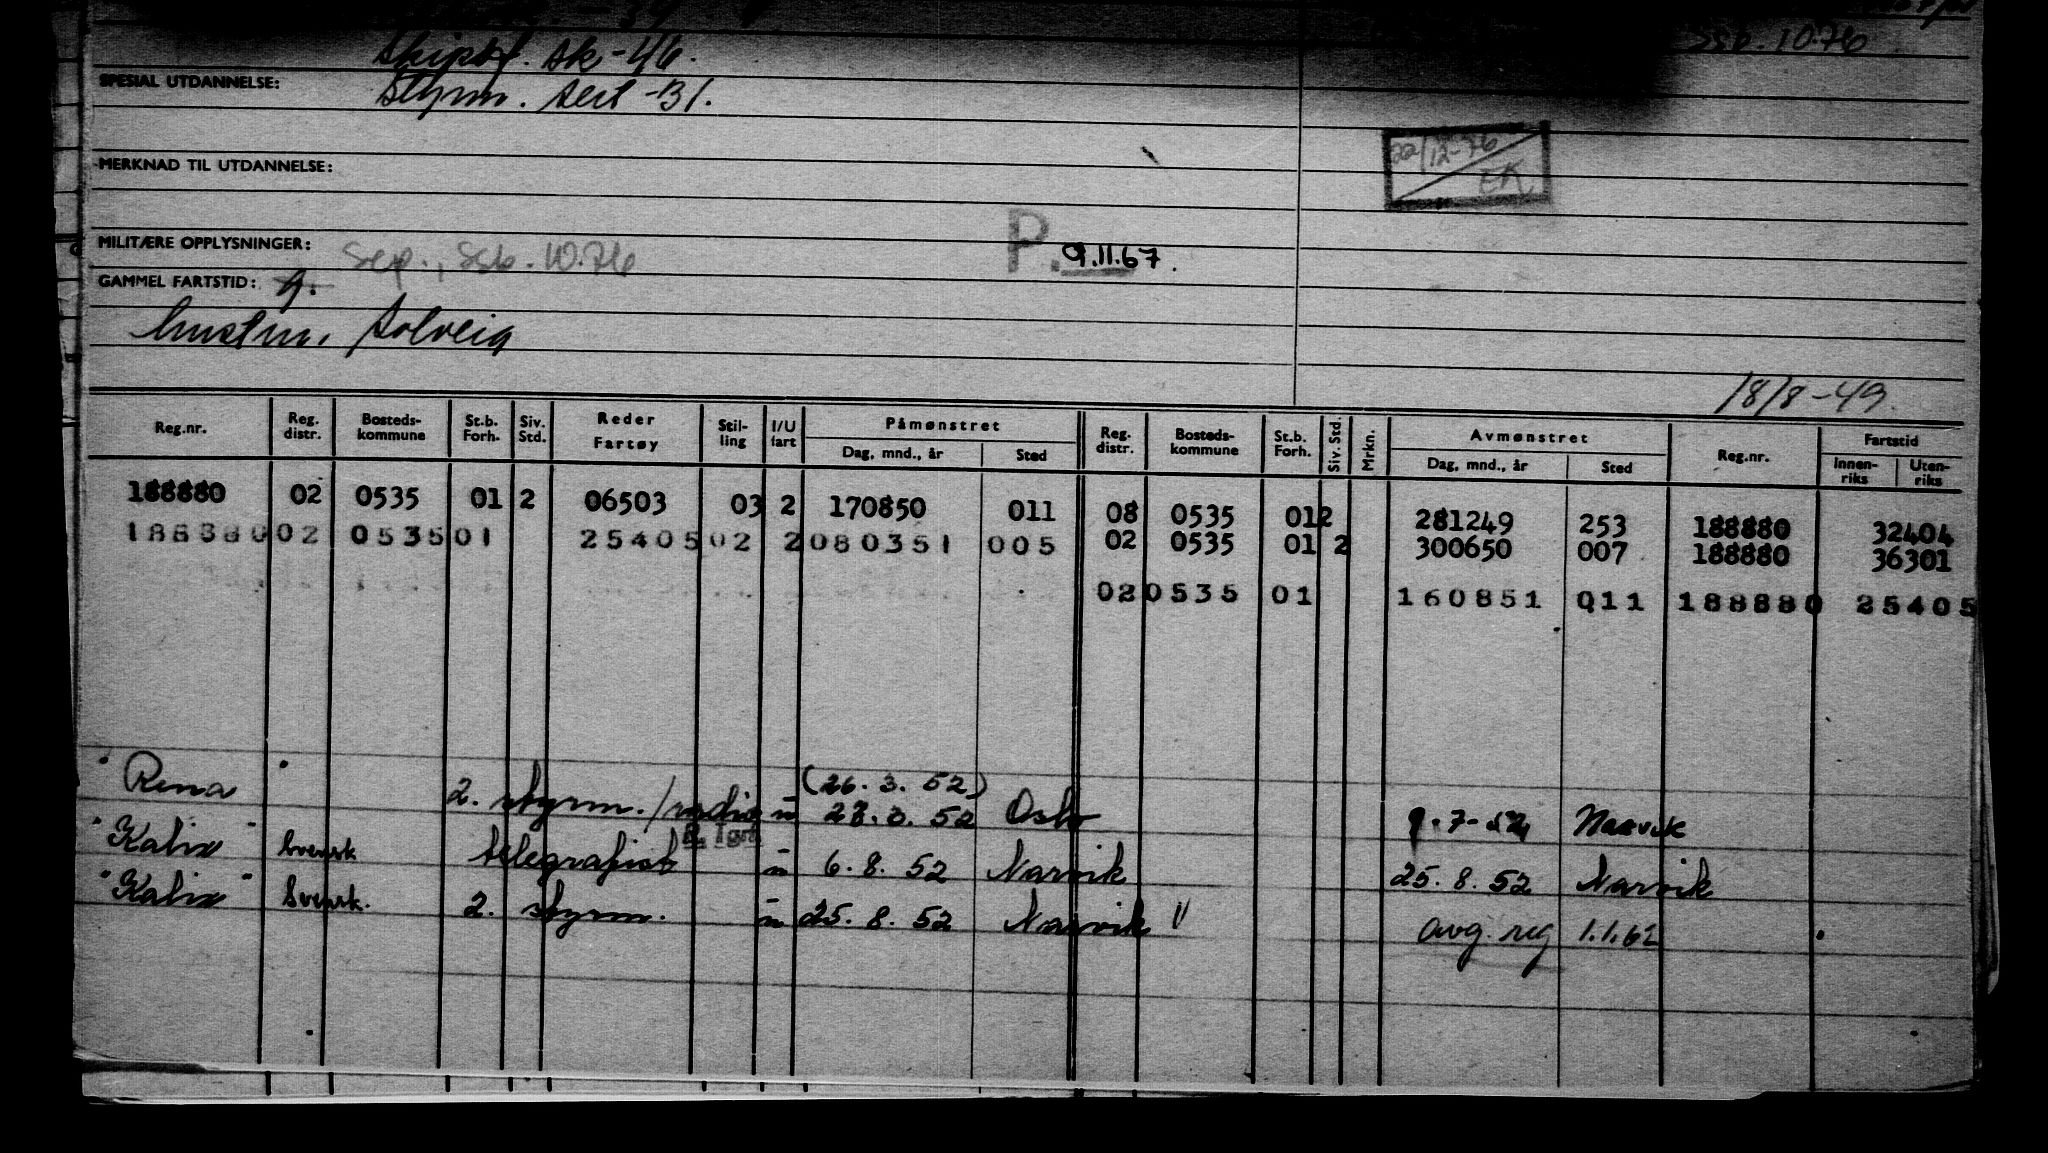 -39
Skipsf. sk-46. Ssb. 10.76
SPESIAL UTDANNELSE: Styrm. sert -31.
22/12-76
MERKNAD TIL UTDANNELSE:
MILITÆRE OPPLYSNINGER: Sep., Ssb. 10.76 P. 9.11.67.
GAMMEL FARTSTID: g.
hustru, Solveig
18/8-49.
Reg.nr. Reg. distr. Bosteds-kommune St.b. Forh. Siv. Std. Reder Fartøy Stil-ling I/U fart Påmønstret Dag, mnd., år Sted Reg. distr. Bosteds-kommune St.b. Forh. Siv. Std. Mrkn. Avmønstret Dag, mnd., år Sted Reg.nr. Fartstid Innen-riks Uten-riks
188880 02 0535 01 2 06503 03 2 170850 011 08 0535 01 2 281249 253 188880 32404
188880 02 0535 01 25405 02 2 080351 005 02 0535 01 2 300650 007 188880 36301
02 0535 01 160851 011 188880 25405
"Rena" 2. styrm./radio u (26.3.52) 28.3.52 Oslo Narvik
"Kalix" Svensk telegrafist u 6.8.52 Narvik 25.8.52 Narvik
"Kalix" Svensk. 2. styrm. u 25.8.52 Narvik avg. reg 1.1.62